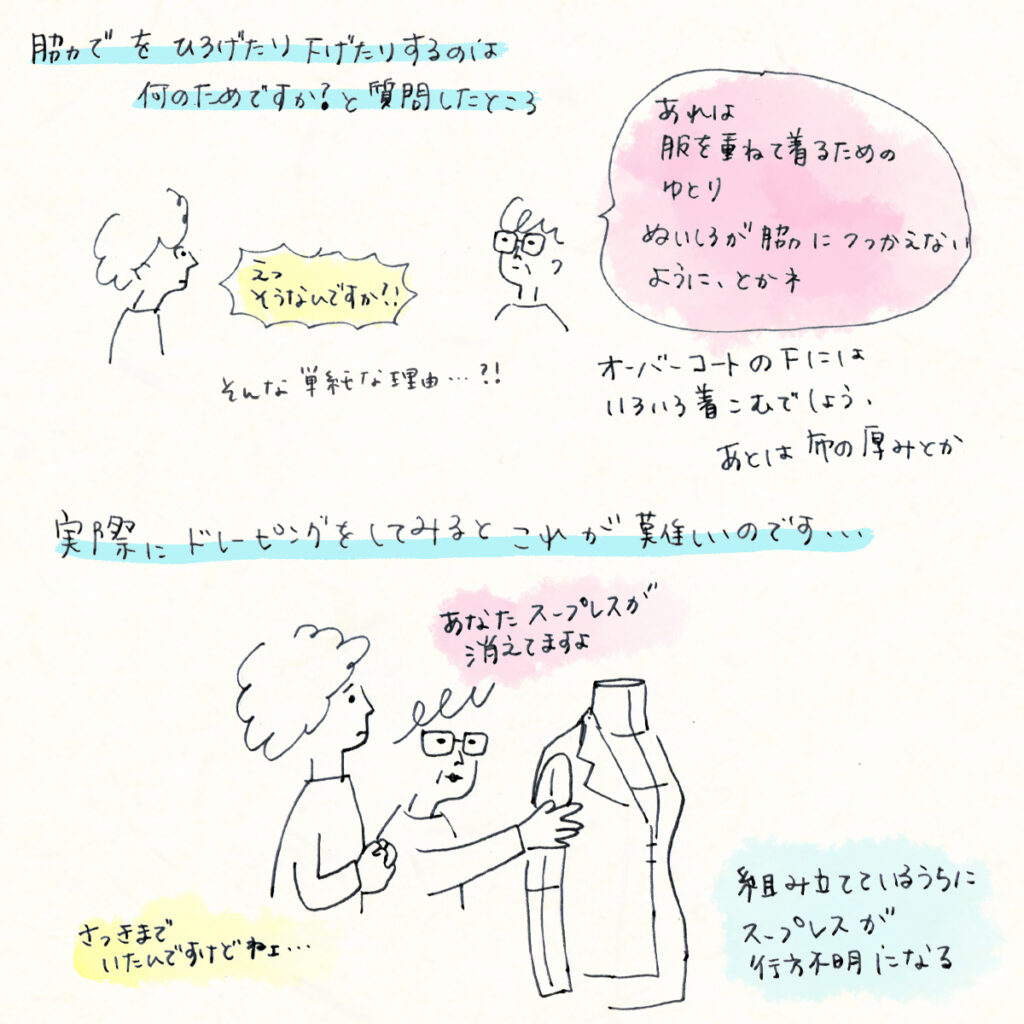 脇でをひろげたり下げたりするのは
何のためですか?と質問したところ
あれは
服を重ねて着るための
ゆとり
ぬいしろが脇につっかえない
ように、とかネ
えっ
そうなんですか?!
そんな単純な理由…?!
オーバーコートの下には
いろいろ着こむでしょう、
あとは布の厚みとか
実際にドレーピングをしてみるとこれが難しいのです...
あなたスープレスが
消えてますよ
さっきまで
いたんですけどねェ...
組み立てているうちに
スープレスが
行方不明になる